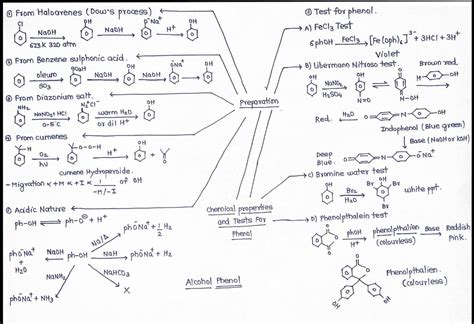 ① From Haloarenes (Dow's process)
Cl
NaOH
623K 320 atm
OH
NaOH
ŌNa⁺
H⁺
OH
② From Benzene sulphonic acid.
oleum
SO₃H
NaOH
OH
NaOH
ŌNa⁺
H⁺
OH
③ From Diazonium salt.
NH₂
NaNO₂+HCl
0-5°C
N₂⁺Cl⁻
warm H₂O
or dil H⁺
OH
④ From cumenes
H
O₂
hν
O-O-H
H⁺
OH
+
cumene Hydroperoxide.
- Migration ∝ +M ∝ +I ∝ 1/-M/-I of OH
① Acidic Nature
ph-OH ⇌ ph-O⊖ + H⁺
phŌNa⁺ + H₂O
NaOH
Na/Δ
phŌNa⁺ + 1/2 H₂
ph-OH
NaH
phŌNa⁺ + H₂
NaNH₂
phŌNa⁺ + NH₃
NaHCO₃
X
Preparation
Chemical properties
and Tests For
Phenol
Alcohol Phenol
② Test for phenol.
A) FeCl₃ Test
6phOH FeCl₃ [Fe(oph)₆]³⁻ + 3HCl + 3H⁺
Violet
B) Libermann Nitroso test.
Brown red.
OH
NaNO₂
H₂SO₄
OH
N=O
O
N-OH
Red.
H₂O
O= =N- -OH
Indophenol (Blue green)
Base (NaOH or KOH)
Deep
Blue.
O= =N- -ŌNa⁺
C) Bromine water test
OH
Br₂
H₂O
OH
Br
Br
Br
white ppt.
D) Phenolpthalein test
PhOH
H⁺
phenolpthalien
(colourless)
Base
Reddish
Pink.
O
OH
OH
Phenolpthalien.
(colourless)